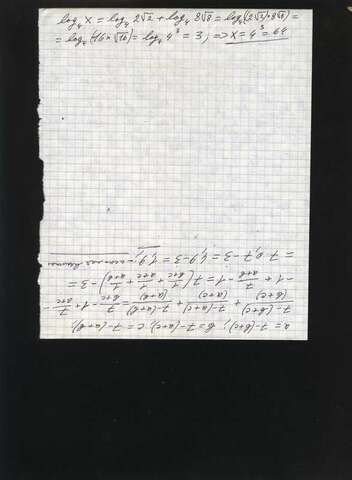 log₄ X = log₄ 2√2 + log₄ 8√8 = log₄(2√2 * 8√8) =
= log₄(16 * √16) = log₄ 4³ = 3; => X = 4³ = 64
a = 7-(b+c); b = 7-(a+c); c = 7-(a+b);
7-(b+c)/(b+c) + 7-(a+c)/(a+c) + 7-(a+b)/(a+b) = 7/b+c -1 + 7/a+c -
-1 + 7/a+b -1 = 7(1/b+c + 1/a+c + 1/a+b) -3 =
= 7·0,7-3 = 4,9-3 = 1,9;